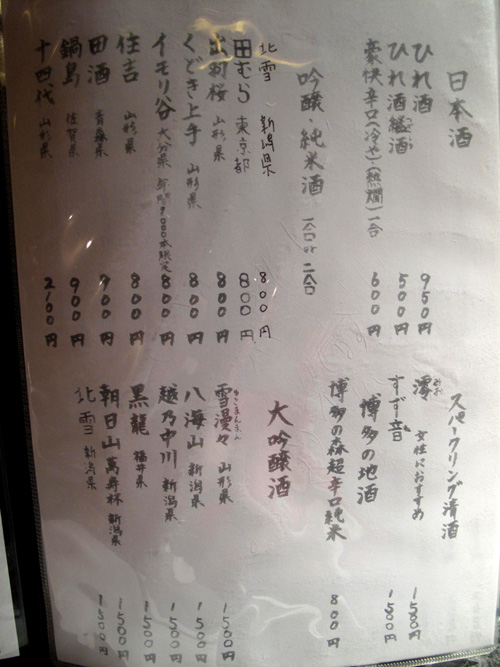 日本酒
ひれ酒 950円
ひれ酒継酒 500円
豪快辛口(冷や)・(熱燗)一合 600円
吟醸・純米酒 一合or二合
北雪 新潟県 800円
田むら 東京都 800円
出羽桜 山形県 800円
くどき上手 山形県 800円
イモリ谷 大分県 年間9000本限定 800円
住吉 山形県 800円
田酒 青森県 900円
鍋島 佐賀県 900円
十四代 山形県 2100円
スパークリング清酒
澪 みお 女性におすすめ 1500円
すず音 1500円
博多の地酒
博多の森超辛口純米 800円
大吟醸酒
雪漫々 ゆきまんまん 山形県 1500円
八海山 新潟県 1500円
越乃中川 新潟県 1500円
黒龍 福井県 1500円
朝日山萬寿杯 新潟県 1500円
北雪 新潟県